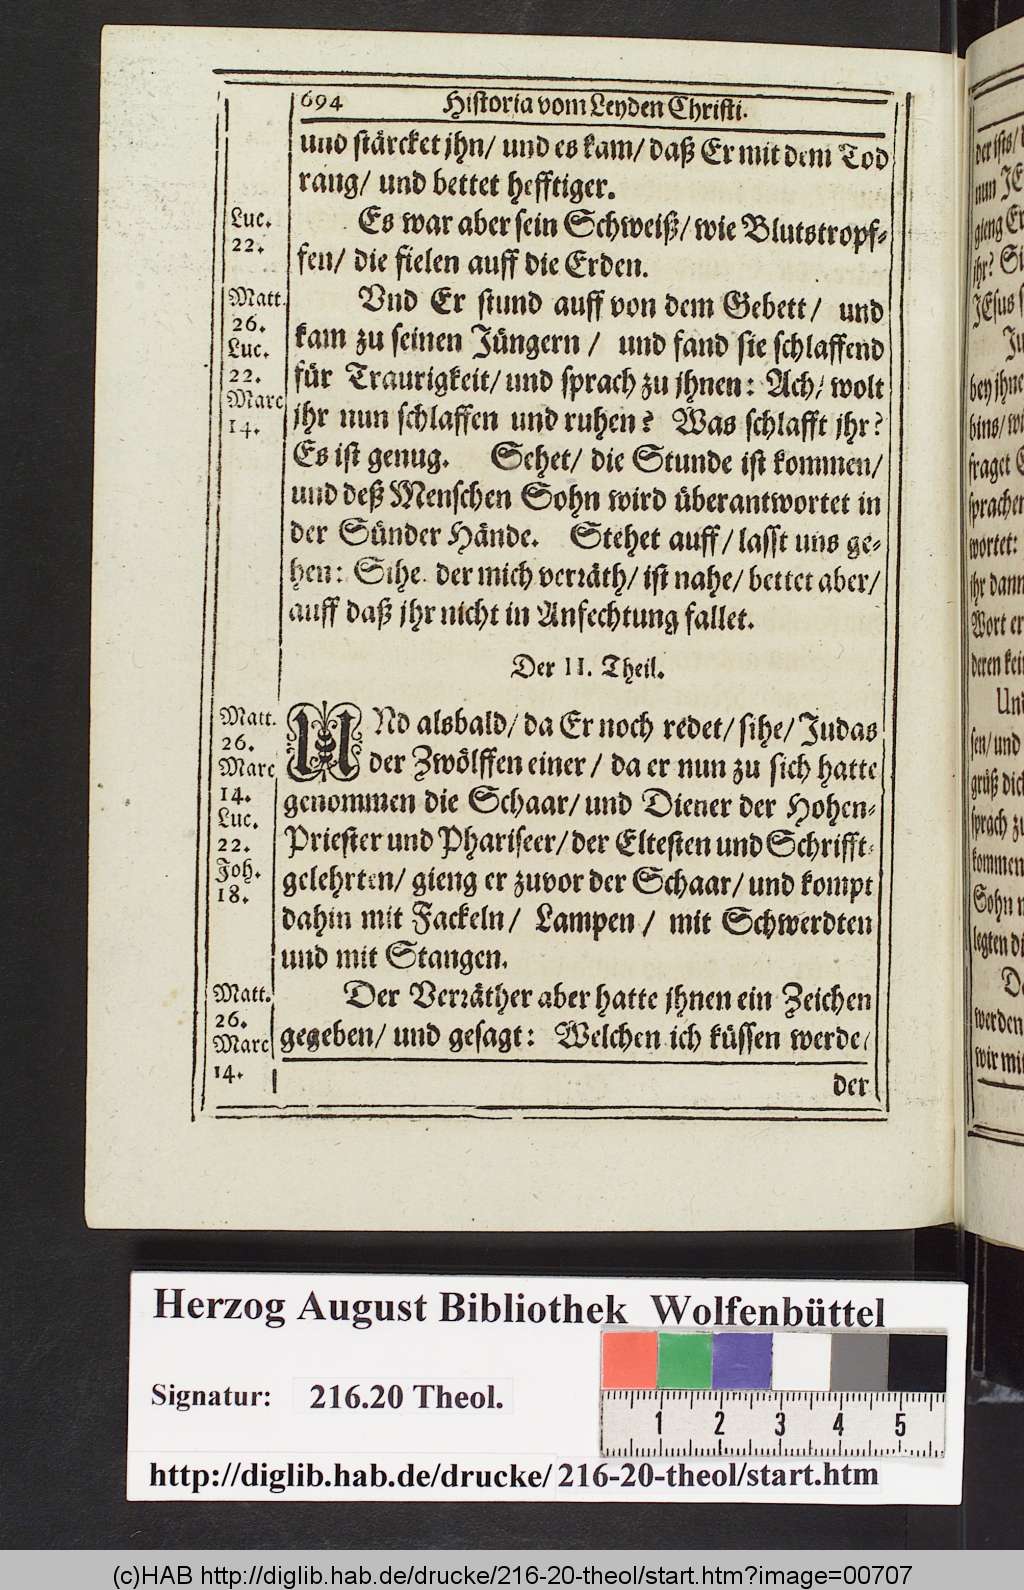 694 Historia vom Leyden Christi.
und stärcket jhn/ und es kam/ daß Er mit dem Tod
rang/ und bettet hefftiger.
Luc.
22.
Es war aber sein Schweiß/ wie Blutstropf-
fen/ die fielen auff die Erden.
Matt.
26.
Luc.
22.
Marc
14.
Vnd Er stund auff von dem Gebett/ und
kam zu seinen Jüngern/ und fand sie schlaffend
für Traurigkeit/ und sprach zu jhnen: Ach/ wolt
jhr nun schlaffen und ruhen? Was schlafft jhr?
Es ist genug. Sehet/ die Stunde ist kommen/
und deß Menschen Sohn wird überantwortet in
der Sünder Hände. Stehet auff/ lasst uns ge-
hen: Sihe. der mich verräth/ ist nahe/ bettet aber/
auff daß jhr nicht in Anfechtung fallet.
Der II. Theil.
Matt.
26.
Marc
14.
Luc.
22.
Joh.
18.
UNd alsbald/ da Er noch redet/ sihe/ Judas
der Zwölffen einer/ da er nun zu sich hatte
genommen die Schaar/ und Diener der Hohen-
Priester und Phariseer/ der Eltesten und Schrifft-
gelehrten/ gieng er zuvor der Schaar/ und kompt
dahin mit Fackeln/ Lampen/ mit Schwerdten
und mit Stangen.
Matt.
26.
Marc
14.
Der Verräther aber hatte jhnen ein Zeichen
gegeben/ und gesagt: Welchen ich küssen werde/
der
der ists/
nun JE
gieng Er
jhr? Si
JEsus s
Ju
bey jhne
bins/ w
fraget E
sprachen
wortet:
jhr dann
Wort er
deren kei
Und
sen/ und
grüß dic
sprach zu
kommen
Sohn m
legten di
Da
werden
wir mit
Herzog August Bibliothek Wolfenbüttel
Signatur: 216.20 Theol.
1 2 3 4 5
http://diglib.hab.de/drucke/216-20-theol/start.htm
(c)HAB http://diglib.hab.de/drucke/216-20-theol/start.htm?image=00707